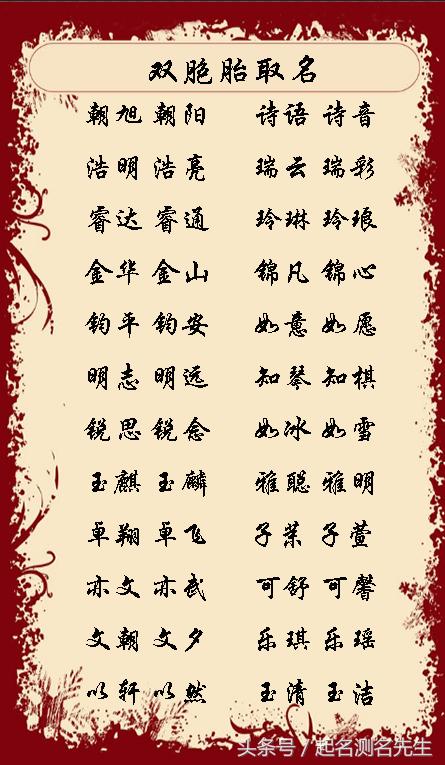 双胞胎取名
朝旭 朝阳 诗语 诗音
浩明 浩亮 瑞云 瑞彩
睿达 睿通 玲琳 玲琅
金华 金山 锦凡 锦心
钧平 钧安 如意 如愿
明志 明远 知琴 知棋
锐思 锐念 如冰 如雪
玉麒 玉麟 雅聪 雅明
卓翔 卓飞 子茉 子萱
亦文 亦武 可舒 可馨
文朝 文夕 乐琪 乐瑶
以轩 以然 玉清 玉洁
头条号 / 起名测名先生